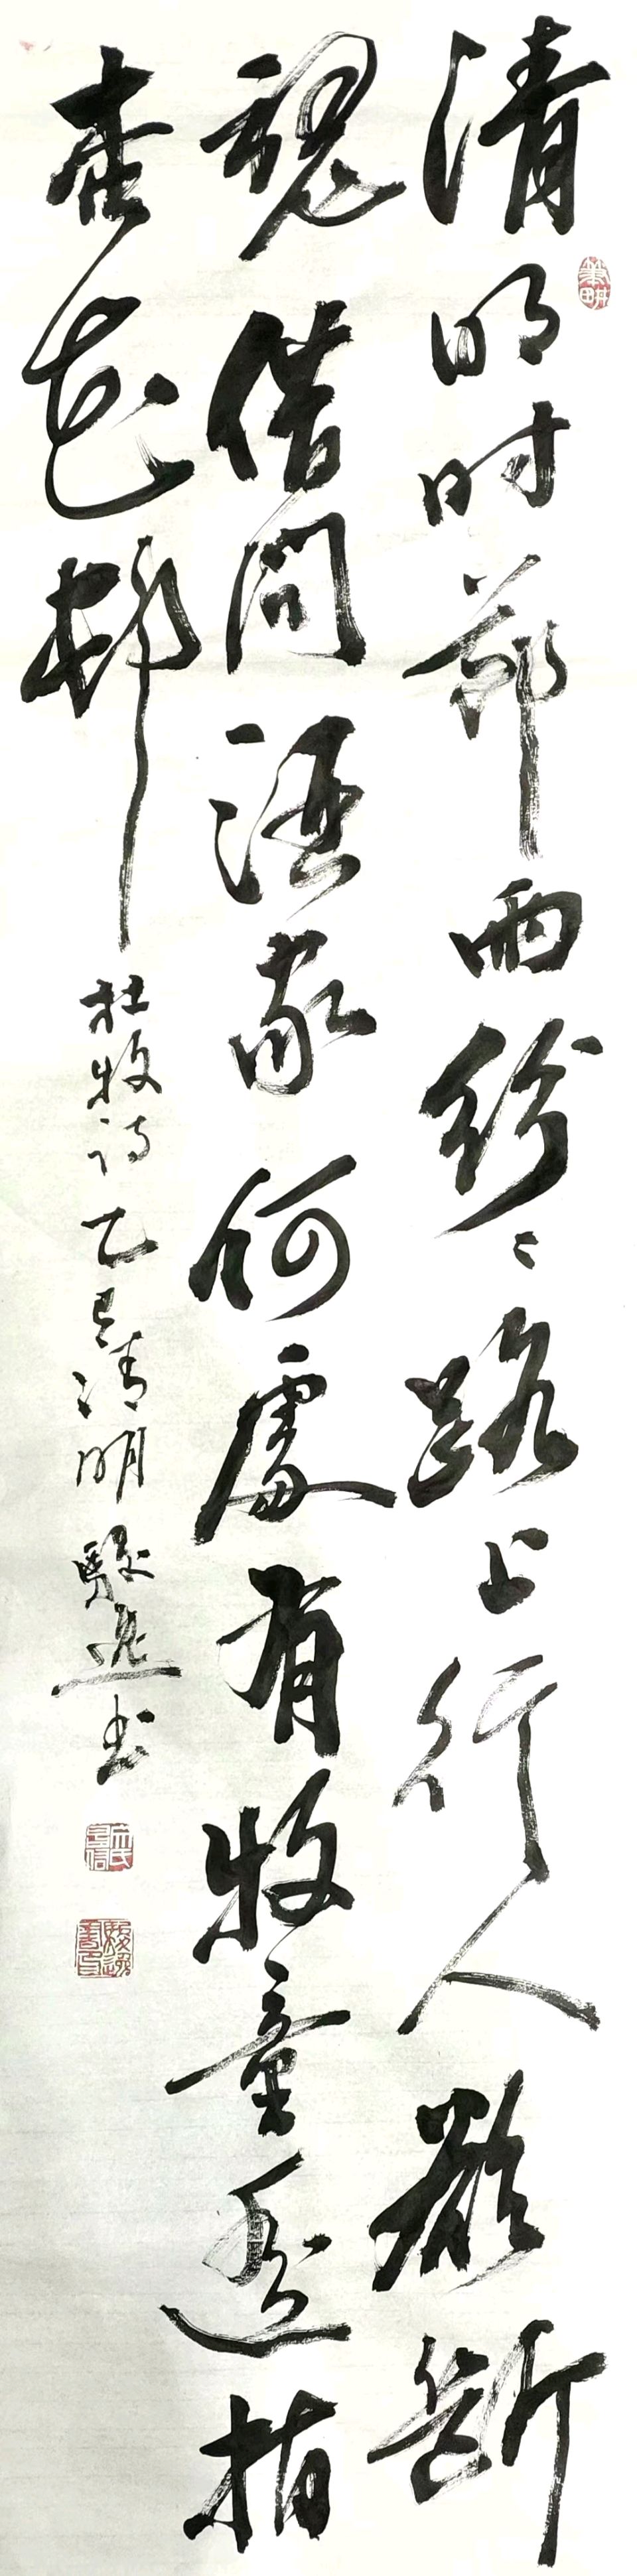 清明时节雨纷纷路上行人欲断
魂借问酒家何處有牧童遥指
杏花邨
杜牧诗乙巳清明骏逸书
筆耕